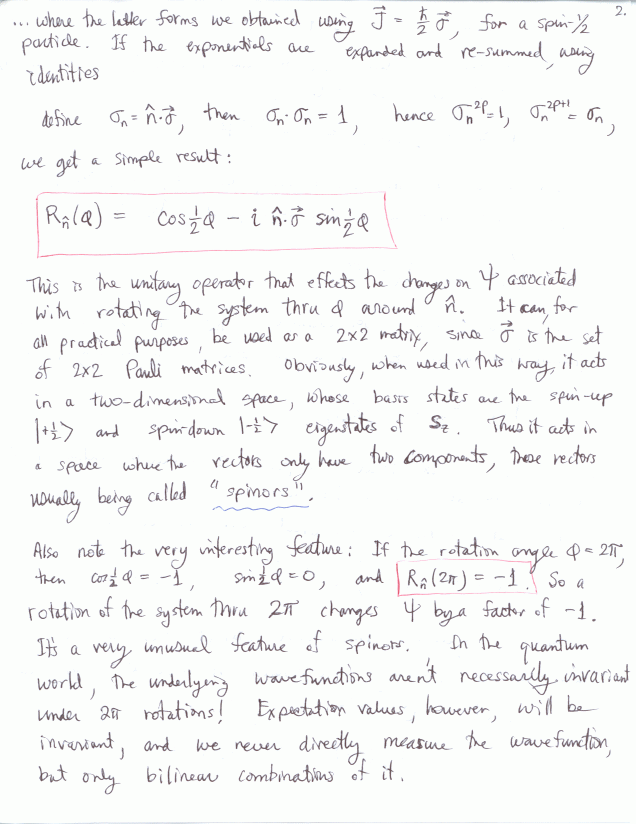 2.
... where the latter forms we obtained using J⃗ = ħ/2 σ⃗, for a spin-½
particle. If the exponentials are expanded and re-summed, using
identities
define σₙ = n̂·σ⃗, then σₙ·σₙ = 1, hence σₙ²ᵖ = 1, σₙ²ᵖ⁺¹ = σₙ,
we get a simple result:
R_n̂(φ) = cos ½φ − i n̂·σ⃗ sin ½φ
This is the unitary operator that effects the changes on Ψ associated
with rotating the system thru φ around n̂. It can, for
all practical purposes, be used as a 2×2 matrix, since σ⃗ is the set
of 2×2 Pauli matrices. Obviously, when used in this way, it acts
in a two-dimensional space, whose basis states are the spin-up
|+½> and spin-down |-½> eigenstates of S_z. Thus it acts in
a space where the vectors only have two components, these vectors
usually being called "spinors".
Also note the very interesting feature: If the rotation angle φ = 2π,
then cos ½φ = −1, sin ½φ = 0, and R_n̂(2π) = −1. So a
rotation of the system thru 2π changes Ψ by a factor of −1.
It's a very unusual feature of spinors. In the quantum
world, the underlying wavefunctions aren't necessarily invariant
under 2π rotations! Expectation values, however, will be
invariant, and we never directly measure the wavefunction,
but only bilinear combinations of it.